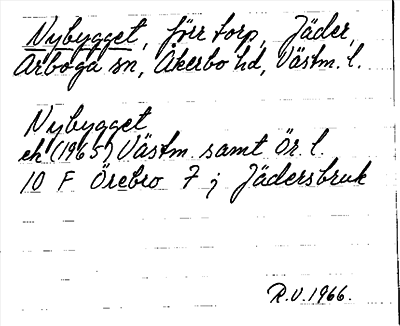 Nybygget, förr torp, Jäder,
Arboga sn, Åkerbo hd, Västm. l.
Nybygget
ek (1965) Västm. samt Ör. l.
10 F Örebro 7 j Jädersbruk
R.V. 1966.